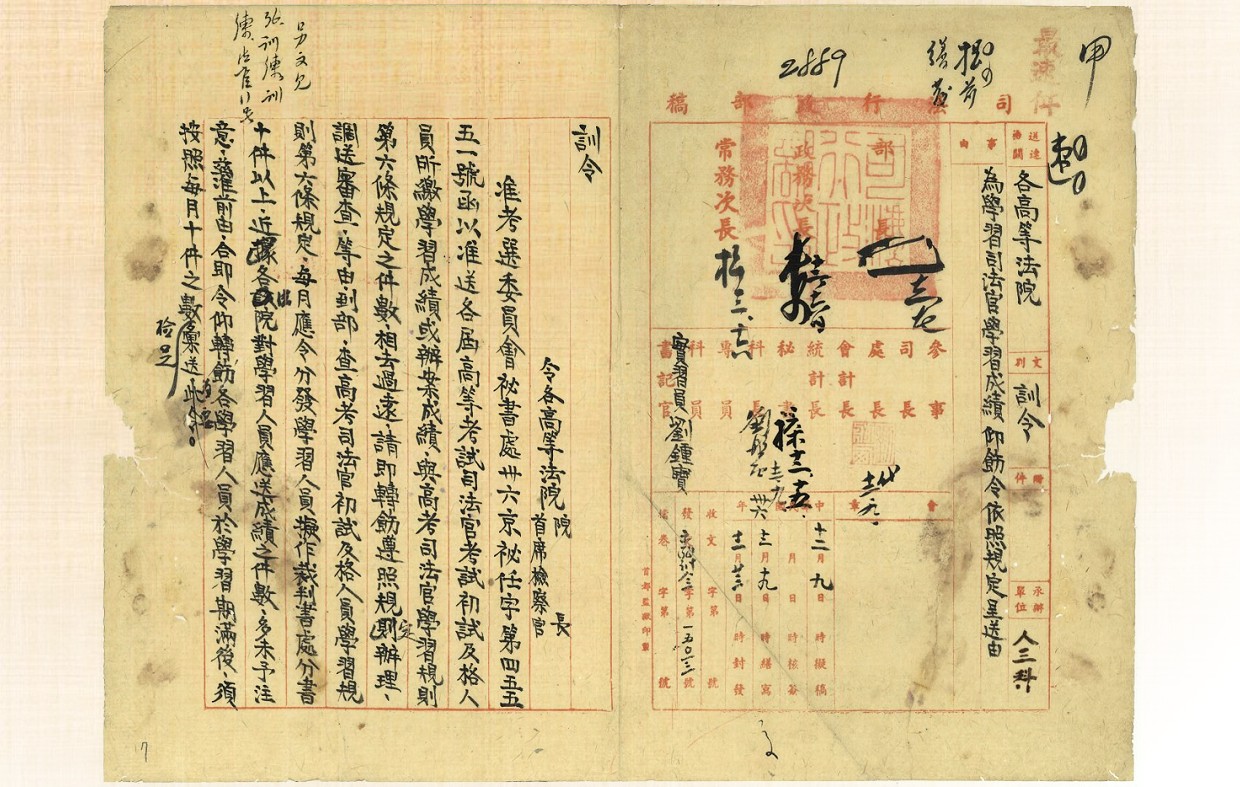 甲
最速件
2889
司法行政部稿
送達機關
各高等法院
文別
訓令
附件
承辦單位
人三科
事由
為學習司法官學習成績仰飭令依照規定呈送由
部長
政務次長
常務次長
參事
司長
處長
會計長
統計長
秘書
科長
專員
科員
書記官
實習員劉鍾寶
會章
中華民國卅六年
十二月九日 時擬稿
月 日 時核簽
十二月九日 時繕寫
月 日 時封發
收文 字第 號
發文 字第一五〇三號
檔卷 字第 號
首都監獄印製
訓令
令各高等法院院長 首席檢察官
准考選委員會祕書處卅六京祕任字第四五五
五一號函以准送各屆高等考試司法官考試初試及格人
員所繳學習成績或辦案成績,與高考司法官學習規則
第六條規定之件數,相去過遠,請即轉飭遵照規定辦理、
調送審查,等由,到部,查高考司法官初試及格人員學習規
則第六條規定,每月應令分發學習人員擬作裁判書處分書
十件以上,近據各院對學習人員應送成績之件數,多未予注
意,茲准前由,合即令仰轉飭各學習人員於學習期滿後,須
按照每月十件之數彙送,此令。